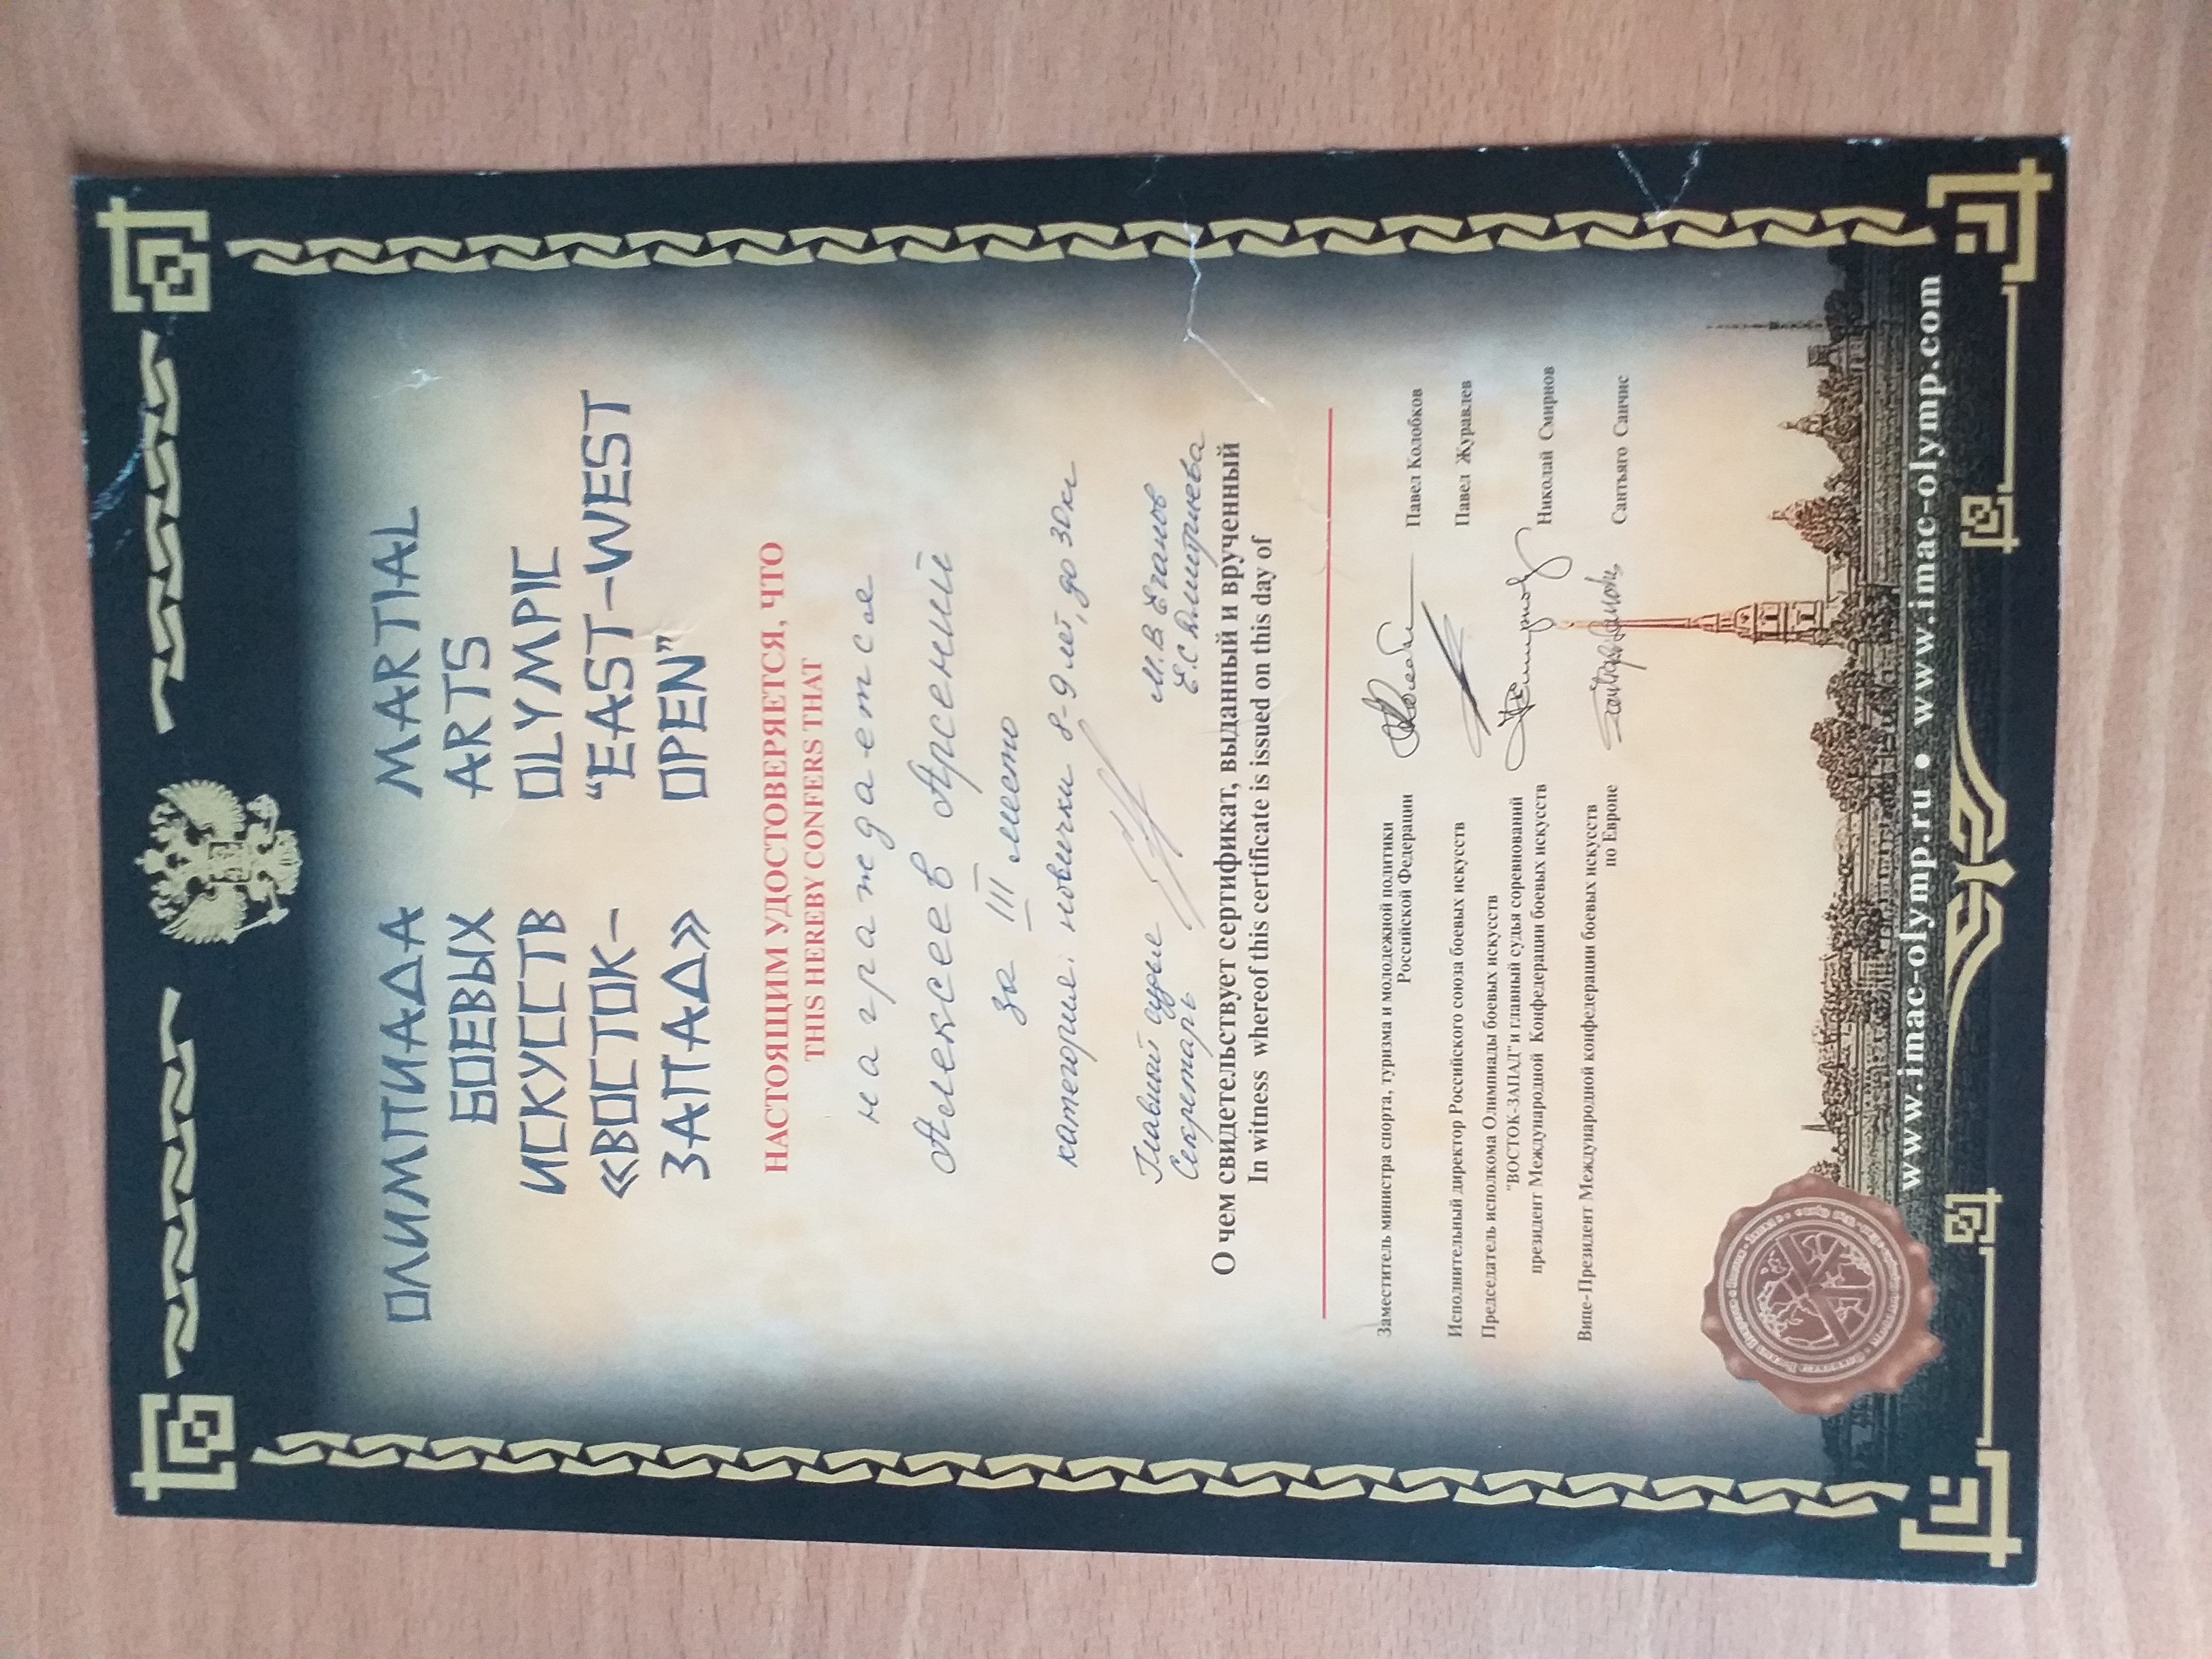 ОЛИМПИАДА
БОЕВЫХ
ИСКУССТВ
«ВОСТОК-
ЗАПАД»
MARTIAL
ARTS
OLYMPIC
“EAST-WEST
OPEN”
НАСТОЯЩИМ УДОСТОВЕРЯЕТСЯ, ЧТО
THIS HEREBY CONFERS THAT
награждается
Алексеев Арсений
за III место
категория: новички 8-9 лет, до 30 кг
Главный судья М.В. Еганов
Секретарь Е.С Дмитриева
О чем свидетельствует сертификат, выданный и врученный
In witness whereof this certificate is issued on this day of
Заместитель министра спорта, туризма и молодежной политики
Российской Федерации Павел Колобков
Исполнительный директор Российского союза боевых искусств Павел Журавлев
Председатель исполкома Олимпиады боевых искусств
"ВОСТОК-ЗАПАД"и главный судья соревнований
президент Международной Конфедерации боевых искусств Николай Смирнов
Вице-Президент Международной конфедерации боевых искусств
по Европе Сантьяго Санчис
www.imac-olymp.ru • www.imac-olymp.com